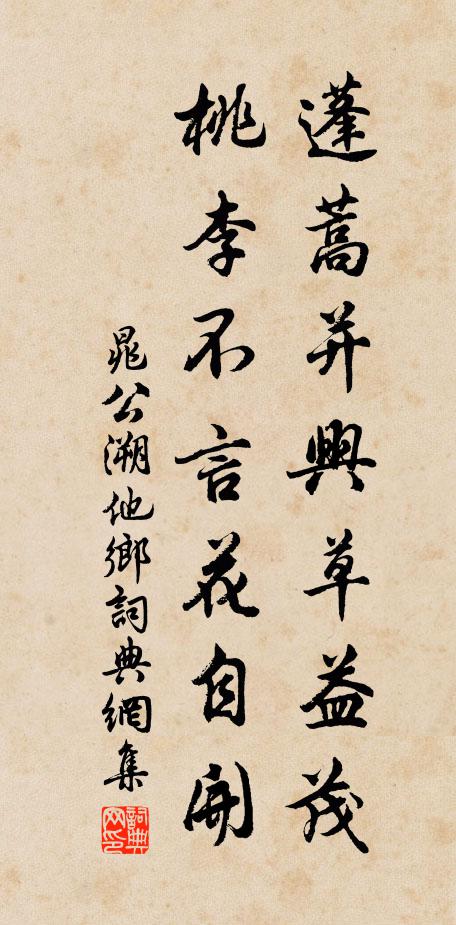 蓬蒿并興草益茂
桃李不言花自開
晁公溯他鄉詞典網集
詞典網印